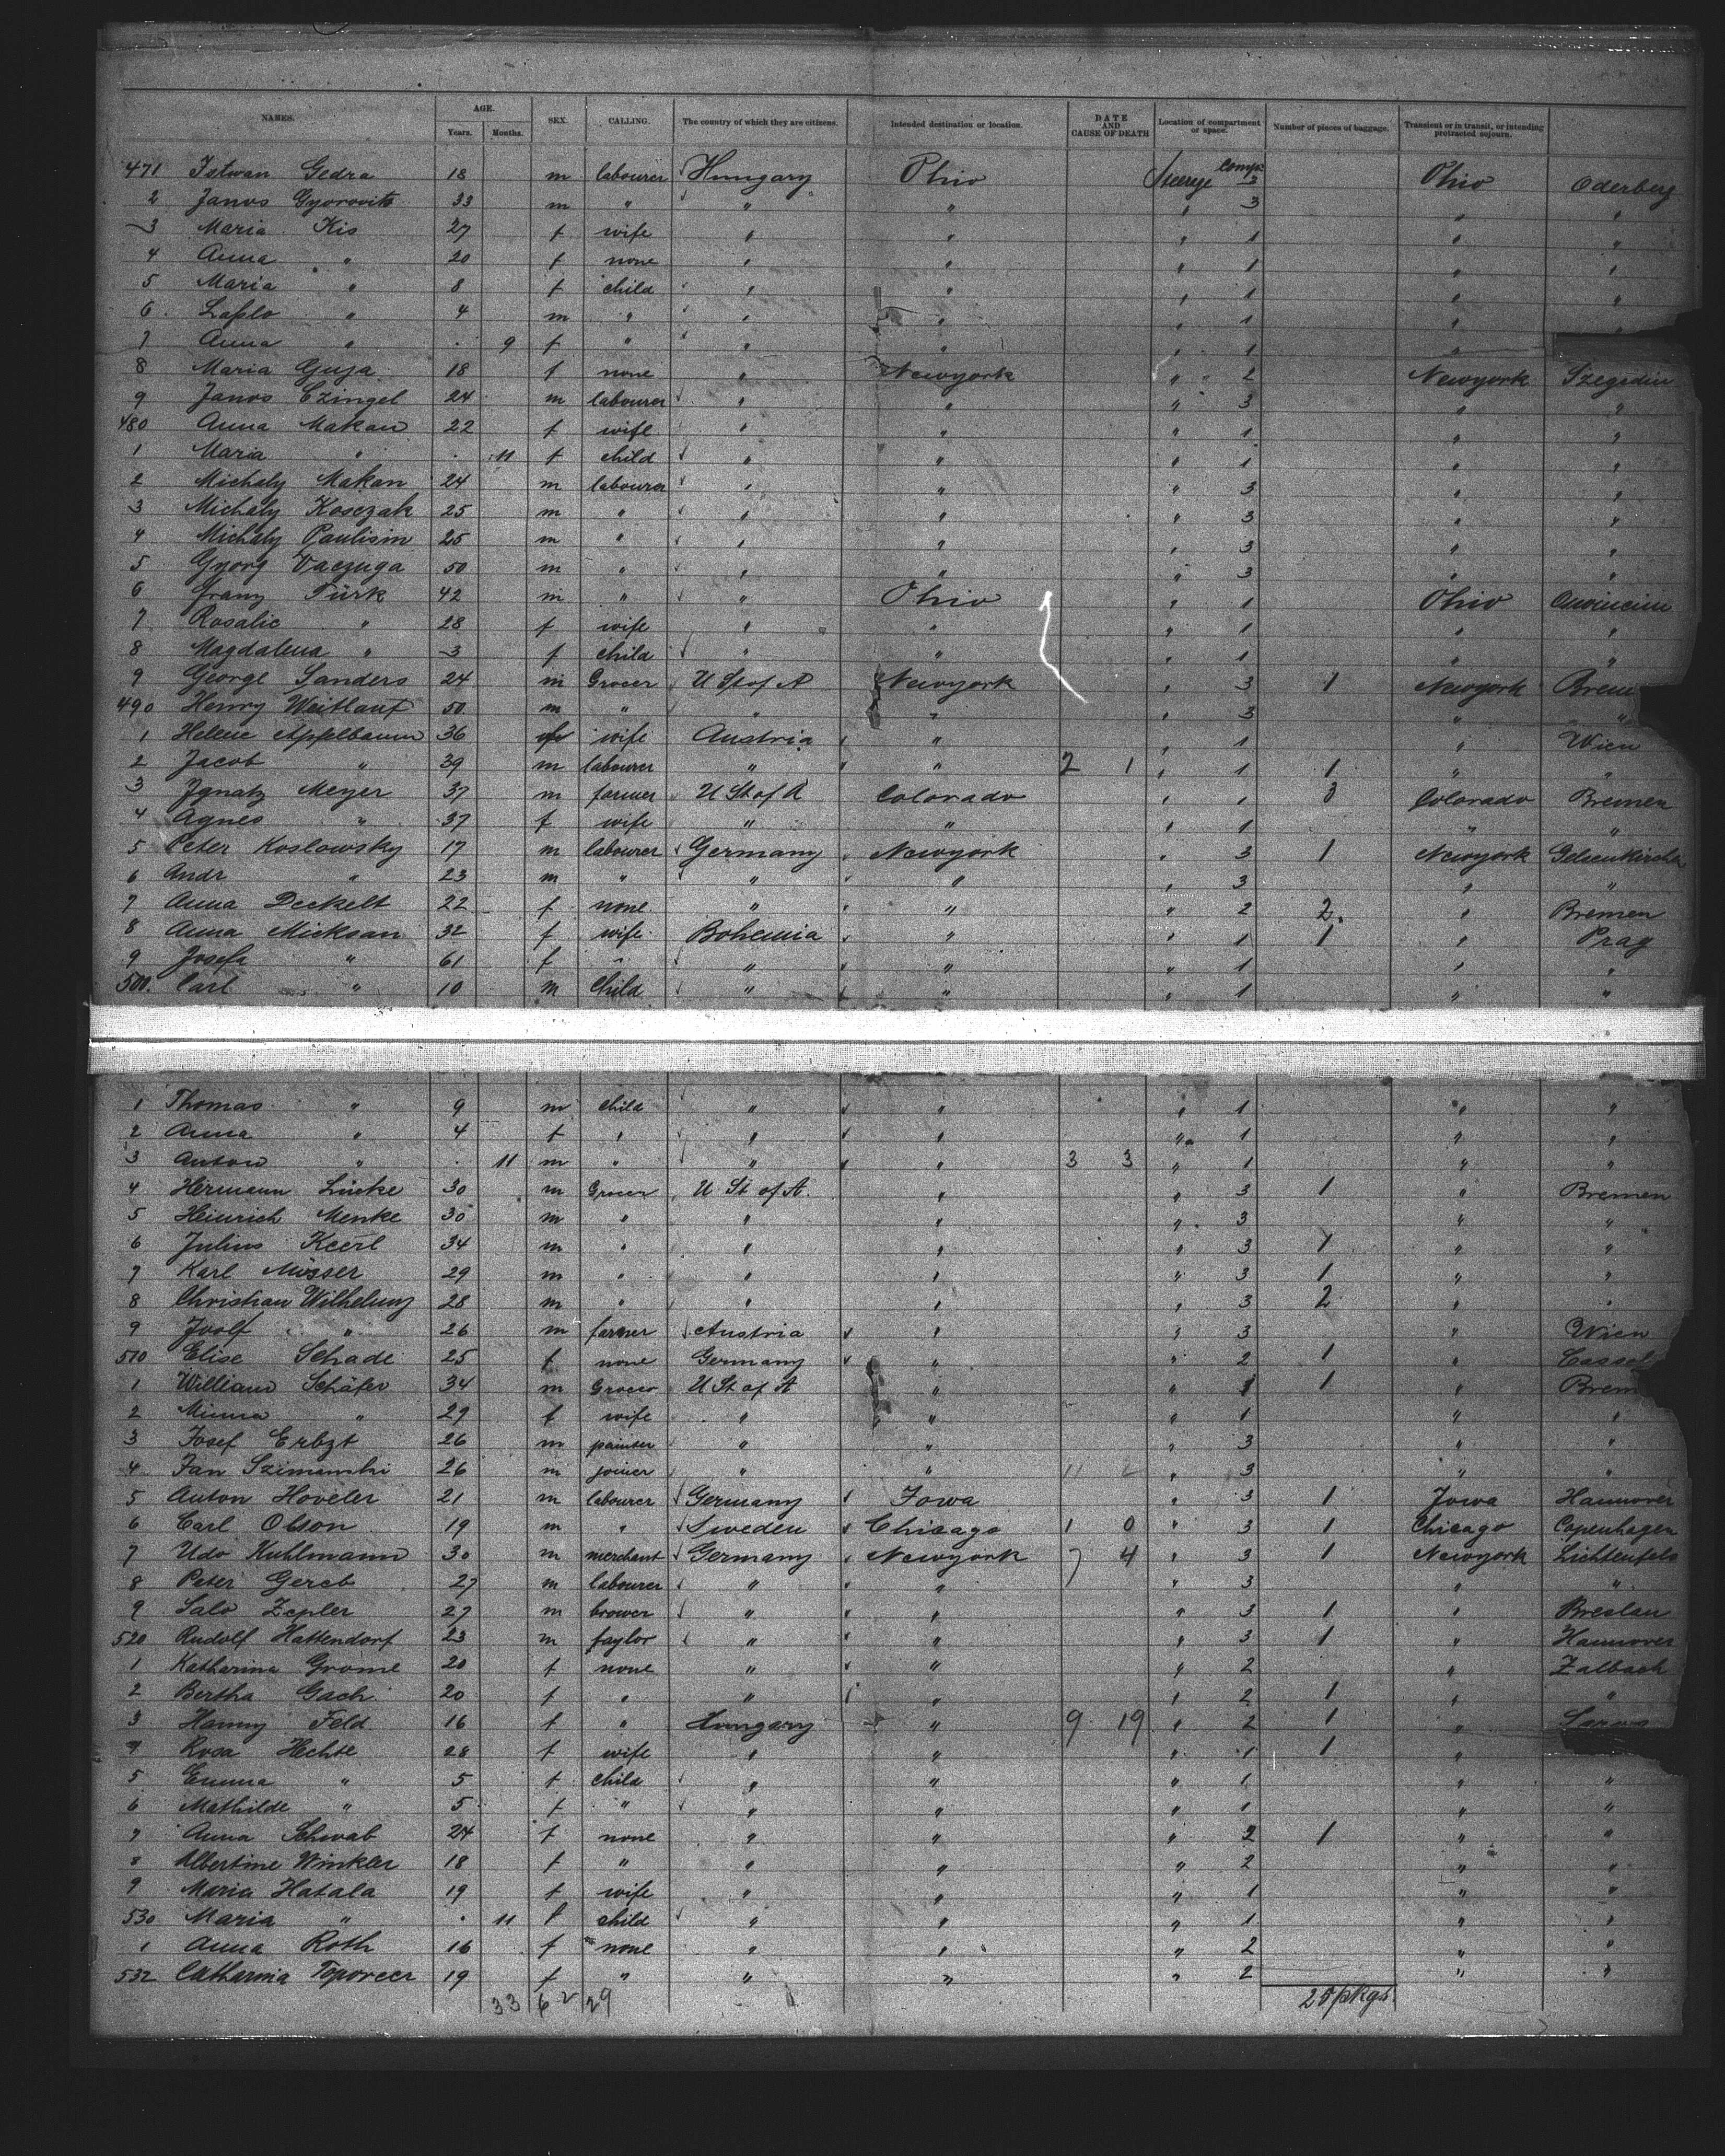 NAMES. AGE. Years. Months. SEX. CALLING. The country of which they are citizens. Intended destination or location. DATE AND CAUSE OF DEATH Location of compartment or space. Number of pieces of baggage. Transient or in transit, or intending protracted sojourn.
471 Istwan Gedra 18 m labourer Hungary Ohio Steerge Comp. 3 Ohio Oderberg
2 Janos Gyorovits 33 m " " " " 3 " "
3 Maria Kis 27 f wife " " " 1 " "
4 Anna " 20 f none " " " 1 " "
5 Maria " 8 f child " " " 1 " "
6 Laslo " 4 m " " " " 1 " "
7 Anna " . 9 f " " " " 1 "
8 Maria Guja 18 f none " Newyork " 2 Newyork Szegedin
9 Janos Czingel 24 m labourer " " " 3 " "
480 Anna Makan 22 f wife " " " 1 " "
1 Maria " . 11 f child " " " 1 " "
2 Michaly Makan 24 m labourer " " " 3 " "
3 Michaly Kosczak 25 m " " " " 3 " "
4 Michaly Paulisin 25 m " " " " 3 " "
5 Gyorg Vaczuga 50 m " " " " 3 " "
6 Franz Türk 42 m " " Ohio " 1 Ohio
7 Rosalie " 28 f wife " " " 1 " "
8 Magdalena " 3 f child " " " 1 " "
9 George Sanders 24 m Grocer U St of A Newyork " 3 1 Newyork Brem
490 Henry Weitlauf 50 m " " " " 3 " "
1 Helene Appelbaum 36 f wife Austria " " 1 " Wien
2 Jacob " 39 m labourer " " 2 1 " 1 1 " "
3 Ignatz Meyer 37 m farmer U St of A Colorado " 1 3 Colorado Bremen
4 Agnes " 37 f wife " " " 1 " "
5 Peter Koslowsky 17 m labourer Germany Newyork " 3 1 Newyork Gelsenkirchen
6 Andr " 23 m " " " " 3 " "
7 Anna Deckelt 22 f none " " " 2 2 " Bremen
8 Anna Micksan 32 f wife Bohemia " " 1 1 " Prag
9 Josefa " 61 f " " " " 1 " "
500. Carl " 10 m Child " " " 1 " "
1 Thomas " 9 m child " " " 1 " "
2 Anna " 4 f " " " " 1 " "
3 Anton " . 11 m " " " 3 3 " 1 " "
4 Hermann Lücke 30 m Grocer U St of A. " " 3 1 " Bremen
5 Heinrich Menke 30 m " " " " 3 " "
6 Julius Keerl 34 m " " " " 3 1 " "
7 Karl Müsser 29 m " " " " 3 1 " "
8 Christian Wilhelmy 28 m " " " " 3 2 " "
9 " 26 m farmer Austria " " 3 " Wien
510 Elise Schade 25 f none Germany " " 2 1 " Cassel
1 William Schäfer 34 m Grocer U St of A " " 1 1 " Brem
2 Minna " 29 f wife " " " 1 " "
3 Josef Erbzt 26 m painter " " " 3 " "
4 Jan Szimanski 26 m joiner " " 11 2 " 3 " "
5 Anton Hoveler 21 m labourer Germany Iowa " 3 1 Jowa Hannover
6 Carl Olson 19 m " Sweden Chicago 1 0 " 3 1 Chicago Copenhagen
7 Udo Kuhlmann 30 m merchant Germany Newyork 7 4 " 3 1 Newyork Lichtenfels
8 Peter Gereb 27 m labourer " " " 3 " "
9 Salo Zepler 27 m brower " " " 3 1 " Breslau
520 Rudolf Hattendorf 23 m taylor " " " 3 1 " Hannover
1 Katharina Grome 20 f none " " " 2 " Zalbach
2 Bertha Gach 20 f " " " " 2 1 " "
3 Hanny Feld 16 f " Hungary " 9 19 " 2 1 "
4 Rosa Hechte 28 f wife " " " 1 1 "
5 Emma " 5 f child " " " 1 " "
6 Mathilde " 5 f " " " " 1 " "
7 Anna Schwab 24 f none " " " 2 1 " "
8 Albertine Winkler 18 f " " " " 2 " "
9 Maria Hatala 19 f wife " " " 1 " "
530 Maria " . 11 f child " " " 1 " "
1 Anna Roth 16 f none " " " 2 " "
532 Catharina Toporcer 19 f " " " " 2 " "
33 62 29 25 pkgs